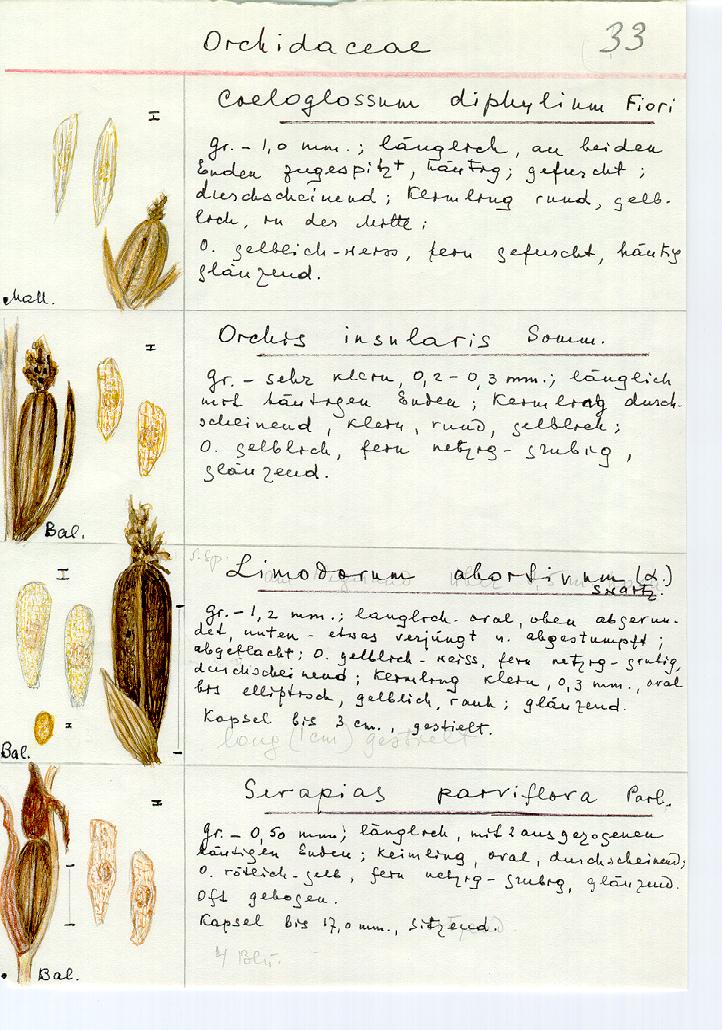 Orchidaceae
33
Coeloglossum diphylium Fiori
gr. - 1,0 mm.; länglich, an beiden
Enden zugespitzt, häutig; gefurcht;
durchscheinend; Kermling rund, gelb-
lich, in der Mitte;
O. gelblich-weiss, fein gefurcht, häutig
glänzend.
Mall.
Orchis insularis Somm.
gr. - sehr klein, 0,2 - 0,3 mm.; länglich
mit häutigen Enden; Kermling durch-
scheinend, klein, rund, gelblich;
O. gelblich, fein netzig-grubig,
glänzend.
Bal.
n. sp.
Limodorum abortivum (L.)
Swartz.
gr. - 1,2 mm.; länglich-oval, oben abgerun-
det, unten - etwas verjüngt u. abgestumpft;
abgeflacht; O. gelblich-weiss, fein netzig-grubig,
durchscheinend; Kermling klein, 0,3 mm., oval
bis elliptisch, gelblich, rauh; glänzend.
Kapsel bis 3 cm., gestielt.
long (1cm) gestielt
Bal.
Serapias parviflora Parl.
gr. - 0,50 mm; länglich, mit 2 ausgezogenen
häutigen Enden; Keimling, oval, durchscheinend;
O. rötlich-gelb, fein netzig-grubig, glänzend.
Oft gebogen.
Kapsel bis 17,0 mm., sitzend.
4 Blü.
Bal.